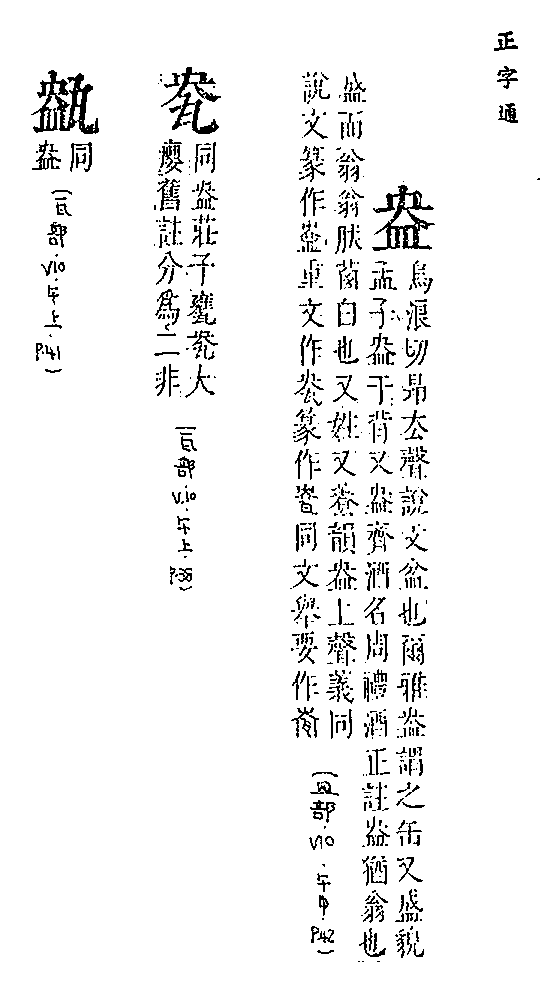 正字通
盎
烏浪切昂去聲說文盆也爾雅盎謂之缶又盛貌
孟子盎于背又盎齊酒名周禮酒正註盎猶翁也
盛而翁翁然蔥白也又姓又養韻盎上聲義同
說文篆作盎重文作瓫篆作同文舉要作
(皿部.V10.午中.P.42)
瓷
同盎莊子甕㼜大
癭舊註分為二非
(瓦部.V.10.午上.P.38)
㼜
同
盎
(瓦部.V10.午上.P.41)